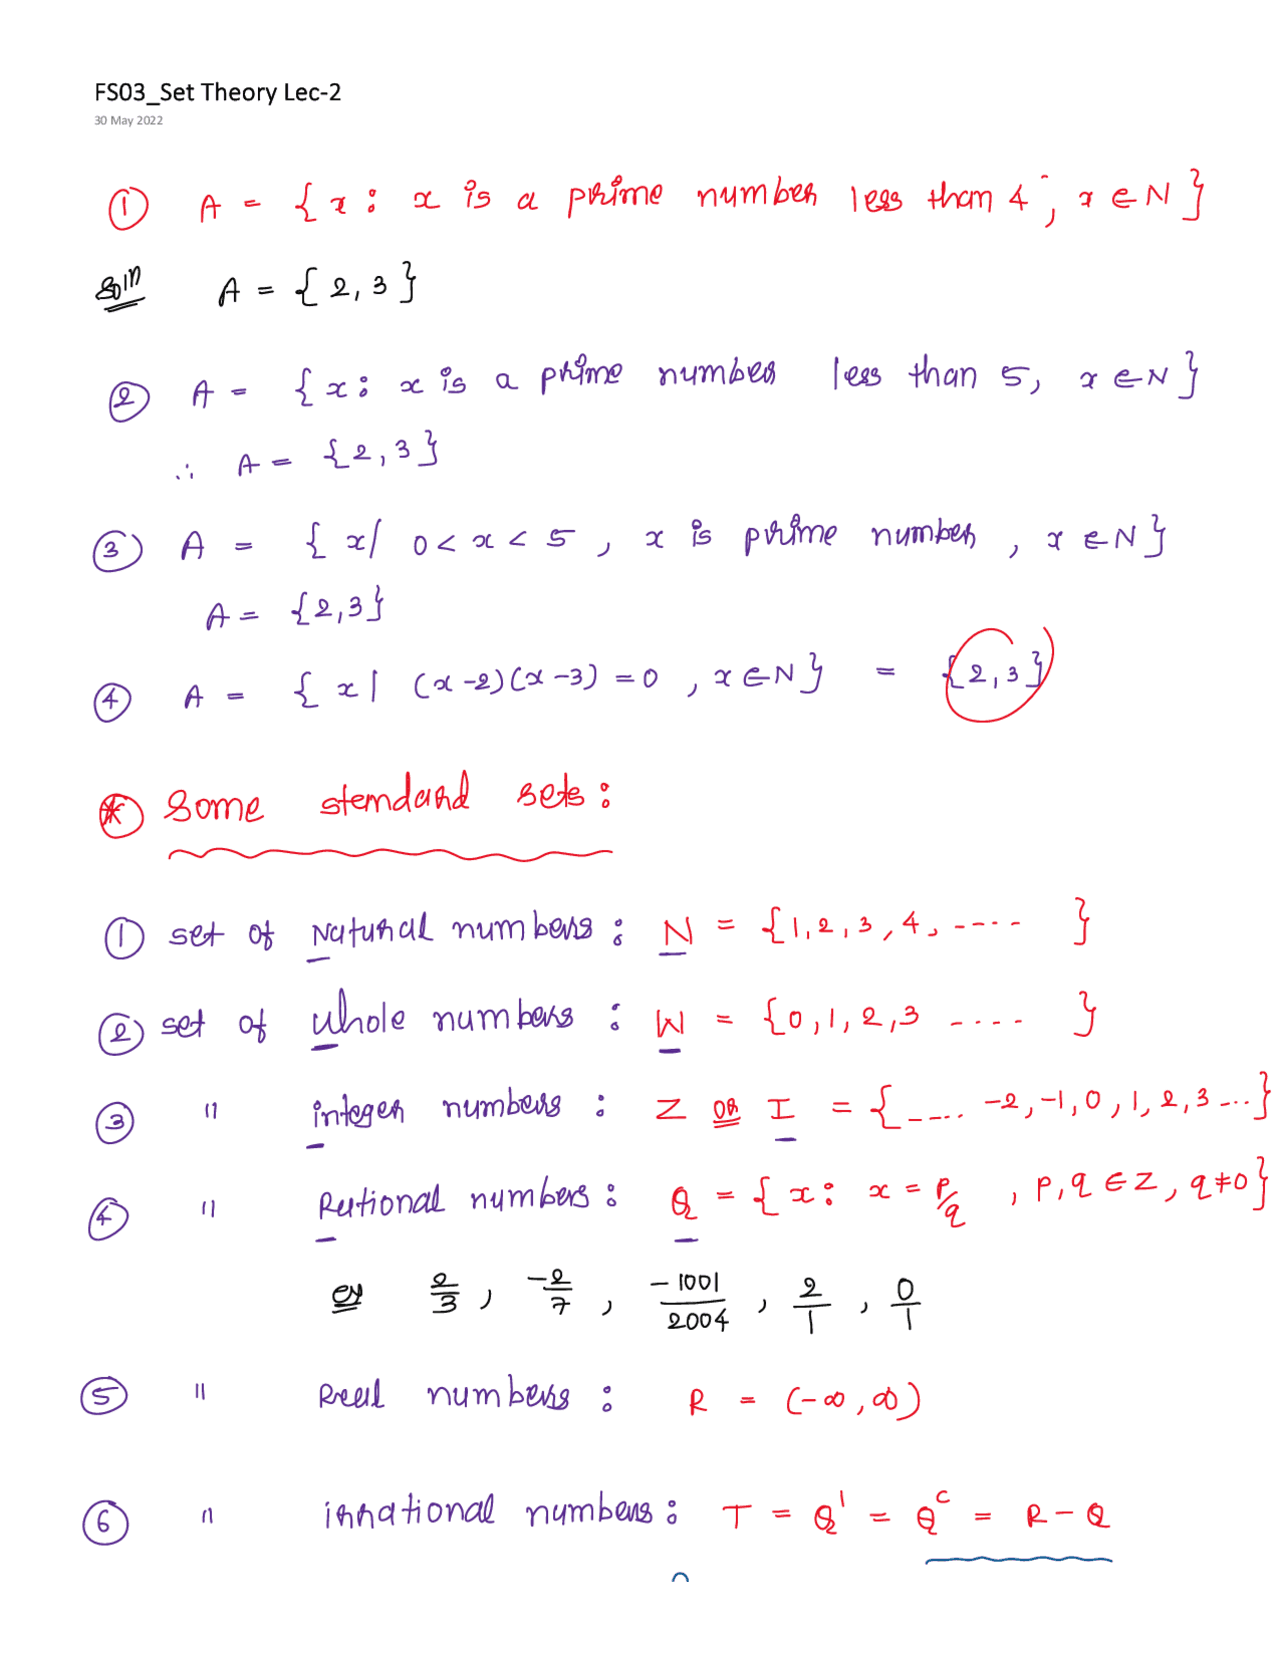 FS03_Set Theory Lec-2
30 May 2022
① A = { x : x is a prime number less than 4 , x ∈ N }
Solⁿ A = { 2, 3 }
② A = { x : x is a prime number less than 5, x ∈ N }
∴ A = { 2, 3 }
③ A = { x / 0 < x < 5 , x is prime number , x ∈ N }
A = { 2, 3 }
④ A = { x | (x-2)(x-3) = 0 , x ∈ N } = { 2, 3 }
* Some standard sets :
① set of Natural numbers : N = { 1, 2, 3, 4, ---- }
② set of whole numbers : W = { 0, 1, 2, 3 ---- }
③ " integer numbers : Z or I = { ---- -2, -1, 0, 1, 2, 3 --- }
④ " Rational numbers : Q = { x : x = p/q , p, q ∈ Z, q ≠ 0 }
ex 2/3 , -2/7 , -1001/2004 , 2/1 , 0/1
⑤ " Real numbers : R = (-∞, ∞)
⑥ " irrational numbers : T = Q' = Qᶜ = R - Q